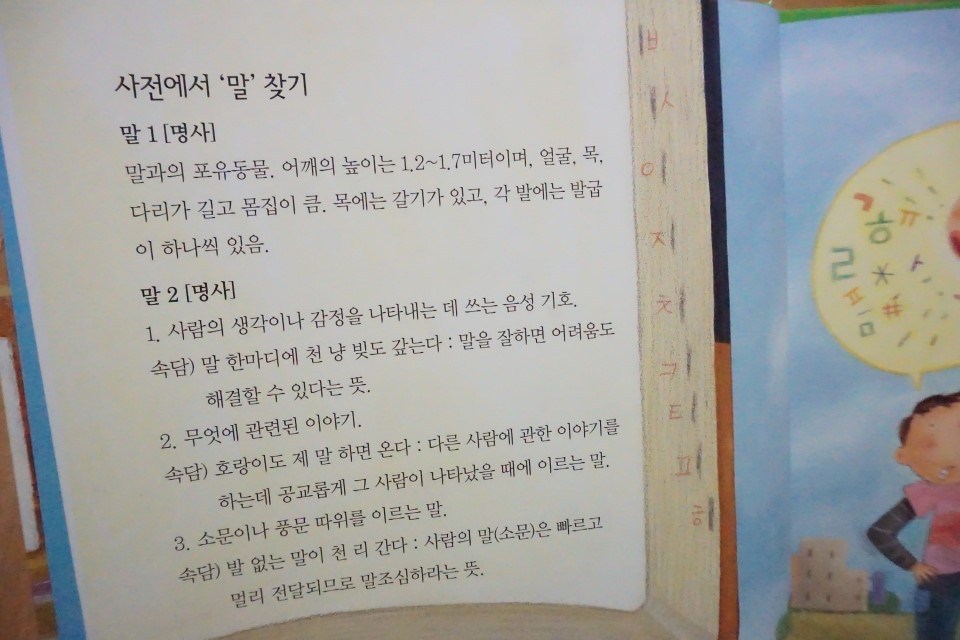 사전에서 '말' 찾기
말 1 [명사]
말과의 포유동물. 어깨의 높이는 1.2~1.7미터이며, 얼굴, 목,
다리가 길고 몸집이 큼. 목에는 갈기가 있고, 각 발에는 발굽
이 하나씩 있음.
말 2 [명사]
1. 사람의 생각이나 감정을 나타내는 데 쓰는 음성 기호.
속담) 말 한마디에 천 냥 빚도 갚는다 : 말을 잘하면 어려움도
해결할 수 있다는 뜻.
2. 무엇에 관련된 이야기.
속담) 호랑이도 제 말 하면 온다 : 다른 사람에 관한 이야기를
하는데 공교롭게 그 사람이 나타났을 때에 이르는 말.
3. 소문이나 풍문 따위를 이르는 말.
속담) 발 없는 말이 천 리 간다 : 사람의 말(소문)은 빠르고
멀리 전달되므로 말조심하라는 뜻.
ㅂ
ㅅ
ㅇ
ㅈ
ㅊ
ㅋ
ㅌ
ㅍ
ㅎ